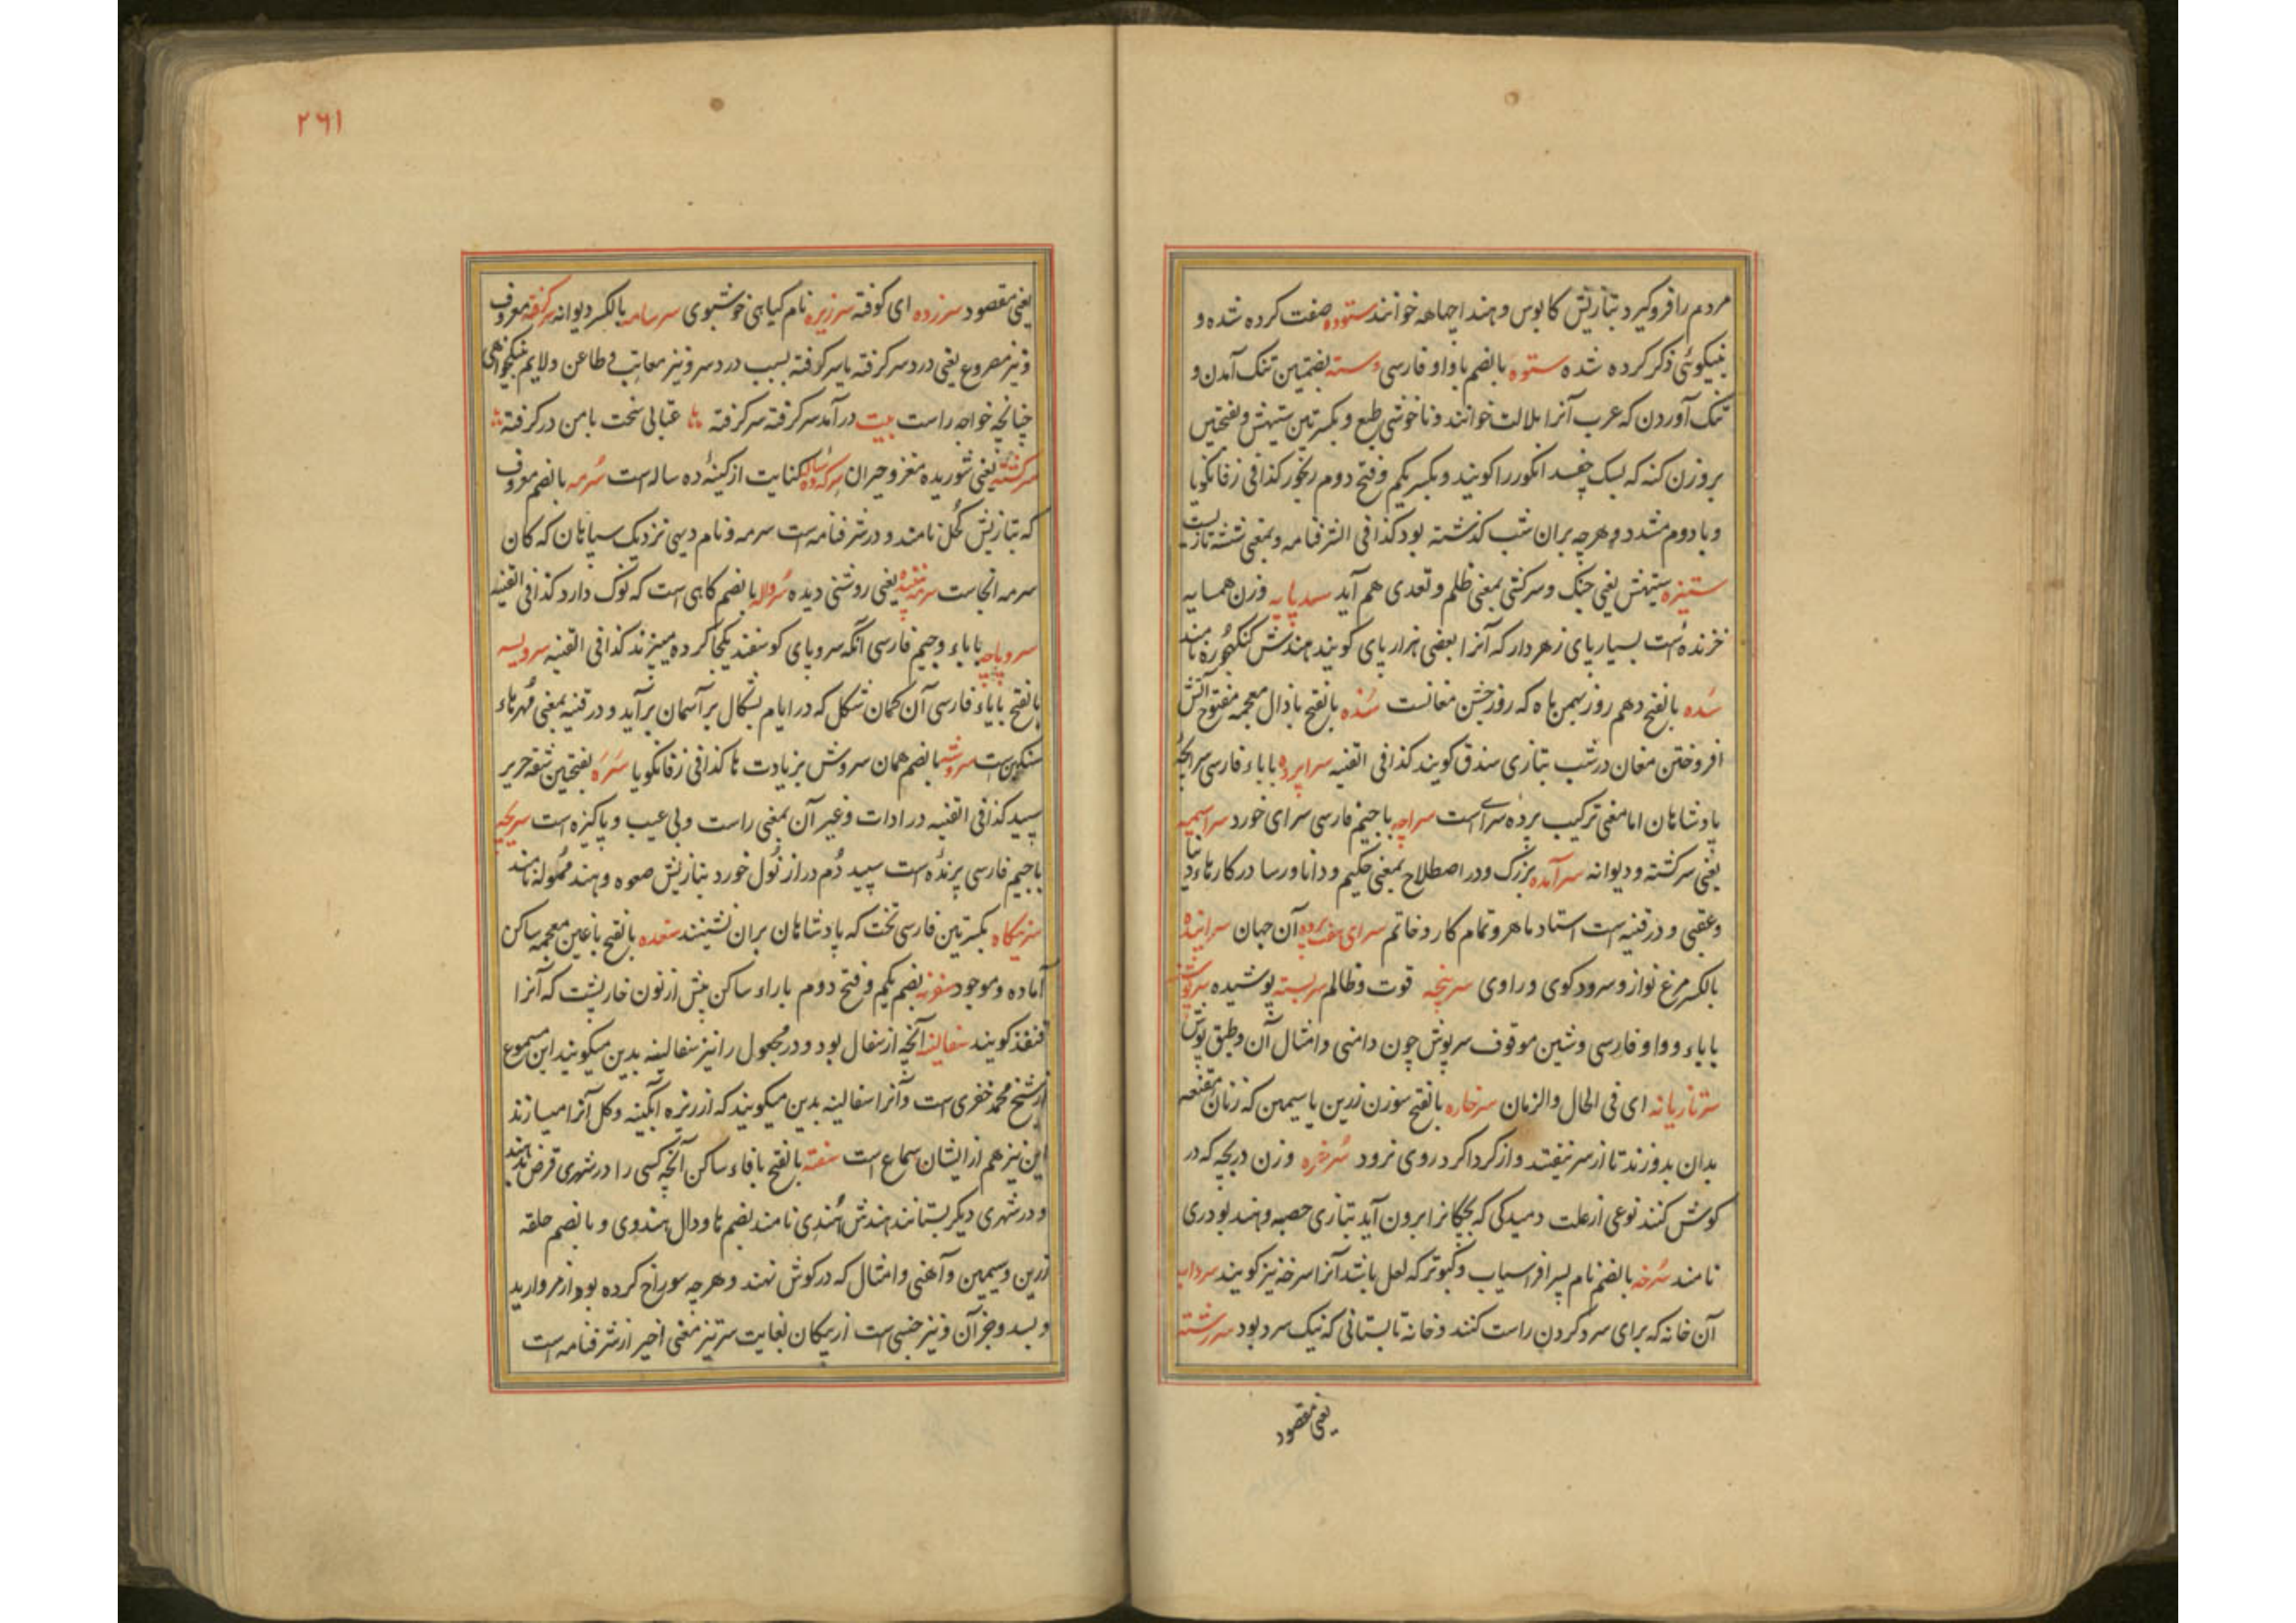 مردم را فروگیرد بتازیش کابوس و هند اچهاهه خوانند ستوده صفت کرده شده و
بنیکوئی ذکر کرده شده ستوه بالضم با واو فارسی و سته بضمتین تنک آمدن و
تنک آوردن که عرب آنرا ملالت خوانند و ناخوشی طبع و بکسرتین ستیهش و بفتحتین
بروزن کنه که بسک چفسد انکور را کویند و بکسر یکم و فتح دوم ریخور کذا فی زفانکویا
و با دوم مشدد و هرچه بران شب کذشته بود کذا فی الشرفنامه و بمعنی
ستیزه ستیهش یعنی جنک و سرکشی بمعنی ظلم و تعدی هم آید سدپایه وزن همسایه
خزنده است بسیار پای زهردار که آنرا بعضی هزارپای کویند هندش کنکهجوره نامند
سده بالفتح دهم روز بهمن ماه که روز جشن مغانست سذه بالفتح با ذال معجمه مفتوح آتش
افروختن مغان در شب بتازی سذق کویند کذا فی القنیه سراپرده با باء فارسی سرانچهٔ
پادشاهان اما معنی ترکیب پرده سرای است سراچه با جیم فارسی سرای خورد سراسیمه
یعنی سرکشته و دیوانه سرآمده بزرک و در اصطلاح بمعنی حکیم و دانا و رسا در کارهاء دنیا
و عقبی و در قنیه است استاد ماهر و تمام کار و خاتم سرای هفت پرده آن جهان سراینده
بالکسر مرغ نواز و سرود کوی و راوی سرپنجه قوت و ظالم سربسته پوشیده سرپوشنه
با باء و واو فارسی و شین موقوف سرپوش چون دامنی و امثال آن و طبق پوش
سرتازیانه ای فی الحال و الزمان سرخاره بالفتح سوزن زرین یا سیمین که زنان مقنعه
بدان بدوزند تا از سر نیفتد و از کرداکرد روی نرود سرخزه وزن دریچه که در
کوش کنند نوعی از علت دمیدکی که بچکانرا برون آید بتازی حصبه و هند بودری
نامند سرخه بالضم نام پسر افراسیاب و کبوتر که لعل باشد آنرا سرخه نیز کویند سردابه
آن خانه که برای سرد کردن راست کنند و خانه تابستانی که نیک سرد بود سررشته
یعنی مقصود
۲۶۱
یعنی مقصود سرزده ای کوفته سرزیره نام کیاهی خوشبوی سرسامه بالکسر دیوانه سرکرفته معروف
و نیز مصروع یعنی درد سر کرفته یا سرکوفته بسبب درد سر و نیز معاتب فی طاعن و لایم
چنانچه خواجه راست بیت درآمد سرکرفته سرکرفته عتابی سخت با من درکرفته
سرکشته یعنی شوریده مغز و حیران سرکه ده ساله کنایت از کینهٔ ده ساله است سرمه بالضم معروف
که بتازیش کحل نامند و در شرفنامه است سرمه و نام دیهی نزدیک سپاهان که کان
سرمه انجاست یعنی روشنی دیده سرواله بالضم کاهی است که نوک دارد کذا فی القنیه
سروپاچه با باء و جیم فارسی آنکه سر و پای کوسفند یکجا کرده میپزند کذا فی القنیه سرویسه
بالفتح با یاء فارسی آن کمان شکل که در ایام بشکال بر آسمان برآید و در قنیه بمعنی مهرهاء
سنکین است سروشه بالضم همان سروش بزیادت ها کذا فی زفانکویا سره بفتحتین شقه حریر
سپید کذا فی القنیه در ادات و غیر آن بمعنی راست و بی عیب و پاکیزه است سریچه
با جیم فارسی پرنده است سپید دم دراز نول خورد بتازیش صعوه و هند ممولهٔ نامند
سریرکاه بکسرتین فارسی تخت که پادشاهان بران نشینند سغده بالفتح با غین معجمه ساکن
آماده و موجود سغرنه بضم یکم و فتح دوم با راء ساکن پیش از نون خارپشت که آنرا
قنفذ کویند سفالینه آنچه از سفال بود و در مجهول را نیز سفالینه بدین میکویند این مسموع
از شیخ محمد خضری است و آنرا سفالینه بدین میکویند که از ریزه آبکینه و کل آنرا میسازند
این نیز هم از ایشان سماع است سفته بالفتح با فاء ساکن آنچه کسی را در شهری قرض دهند
و در شهری دیکر بستانند هندش هندی نامند بضم ها و دال هندوی و بالضم حلقه
زرین و سیمین و آهنی و امثال که در کوش نهند و هرچه سوراخ کرده بود از مروارید
و بسد و جز آن و نیز جنسی است از پیکان بغایت سرتیز معنی اخیر از شرفنامه است